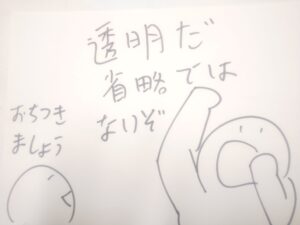 透明だ
省略では
ないぞ
おちつき
ましょう